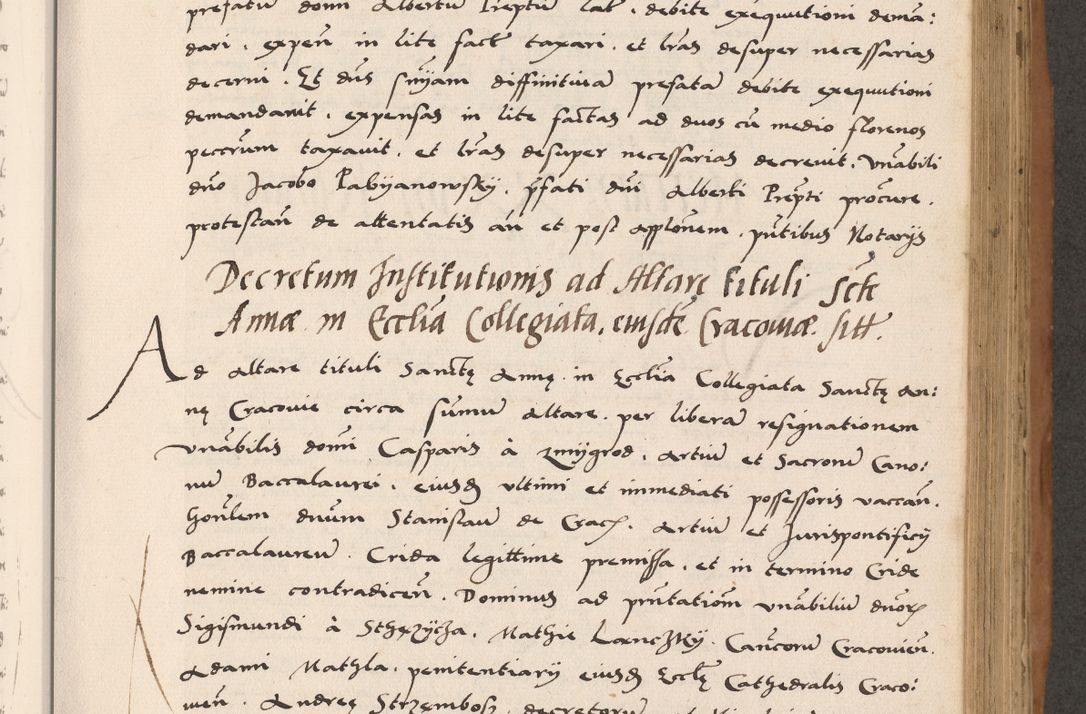 prefatū domī Albertū Preptū lat. debite exequutioni dema:
dari. expeñ in lite fact taxari. et lras desuper necessarias
decerni. Et dns snÿam diffinitiuā prefatā debite exequutioni
demandauit. expensas in lite factas ad duos cū medio florenos
peccrum taxauit. et lras desuper necessarias decreuit. Vnābili
dno Jacobo Pabyanowsky. pfati dni Alberti Prepti procure.
protestañ de attentatis añ et post applonem. pntibus Notarijs
Decretum Institutionis ad Altare tituli Scte
Annæ in Ecclia Collegiata. eiusde Cracouiæ. sitt.
Ad altare tituli Sanctę Annę in Ecclia Collegiata Sanctę An:
nę Cracouie circa sūmū Altare. per liberā resignationem
vnābilis domi Casparis à Zmijgrod. Artiū et Sacronū Cano:
nū Baccalaurei. eiusd ultimi et immediati possessoris vaccañ.
honlem dnum Stanislaū de Crac. Artiū et Jurispontificij
Baccalaureū. Crida legittime premissa. et in termino Cride
nemine contradiceñ. Dominus ad pntationē vnābiliū dnor
Sigismundi à Sthęzycza. Mathie Lanczky. Cancorū Cracouieñ.
Adami Mathla. penitentiarij eiusd Eccle Cathedralis Craco:
uieñ. Andreę Strzembosz. decretorū